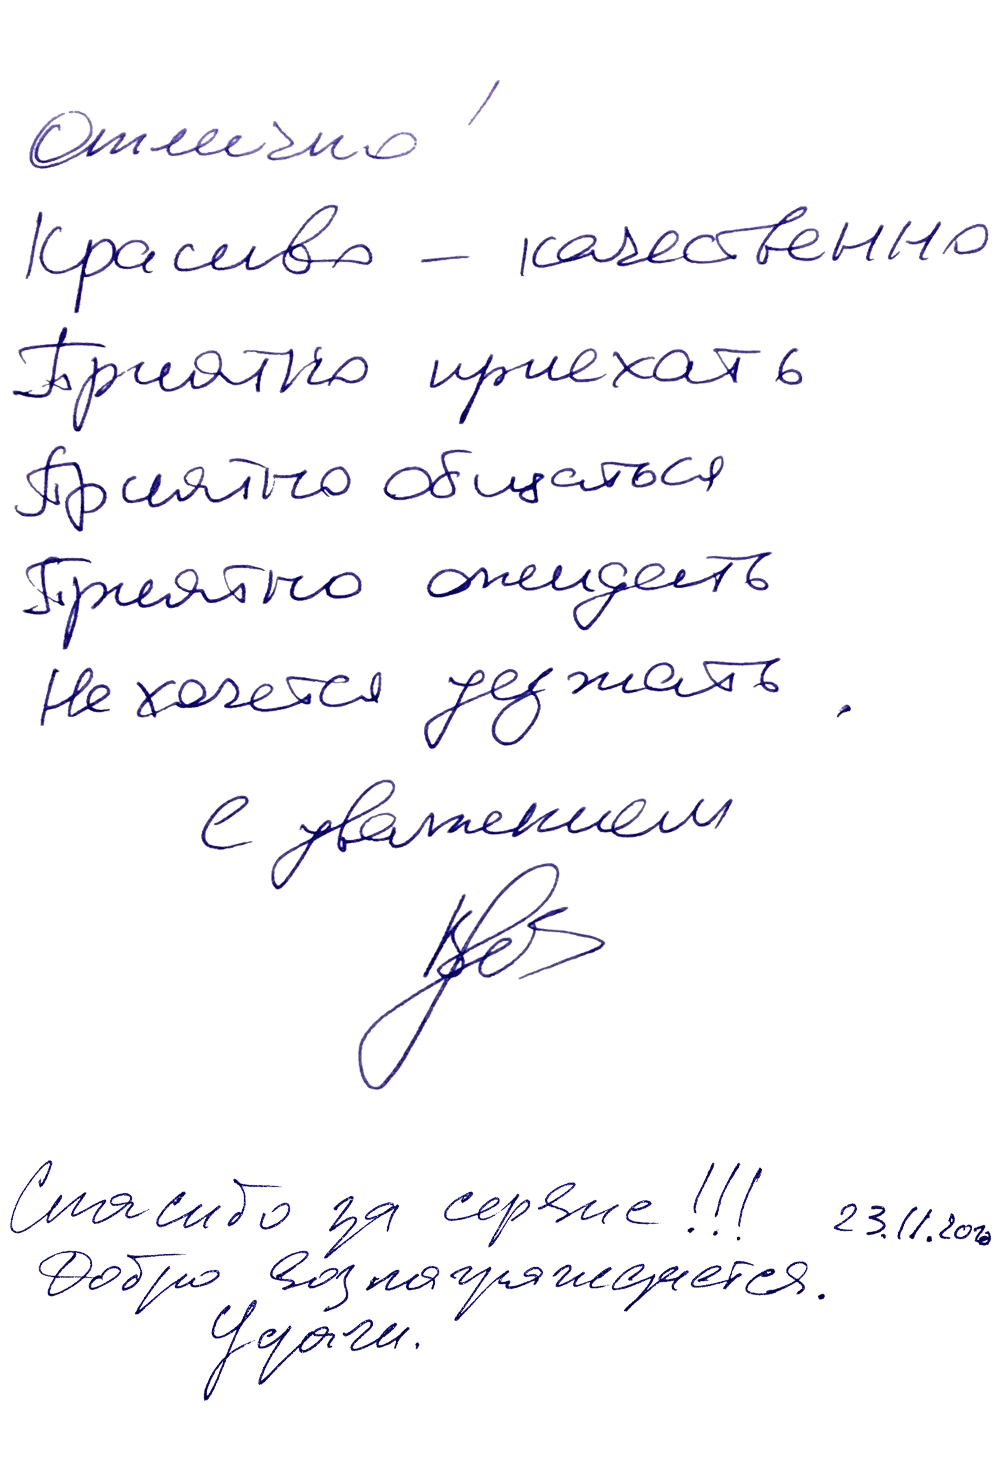 Отлично!
Красиво – качественно
Приятно приехать
Приятно общаться
Приятно ожидать
Не хочется уезжать.
С уважением
Спасибо за сервис!!! 23.11.20
Добро вознаграждается.
Удачи.